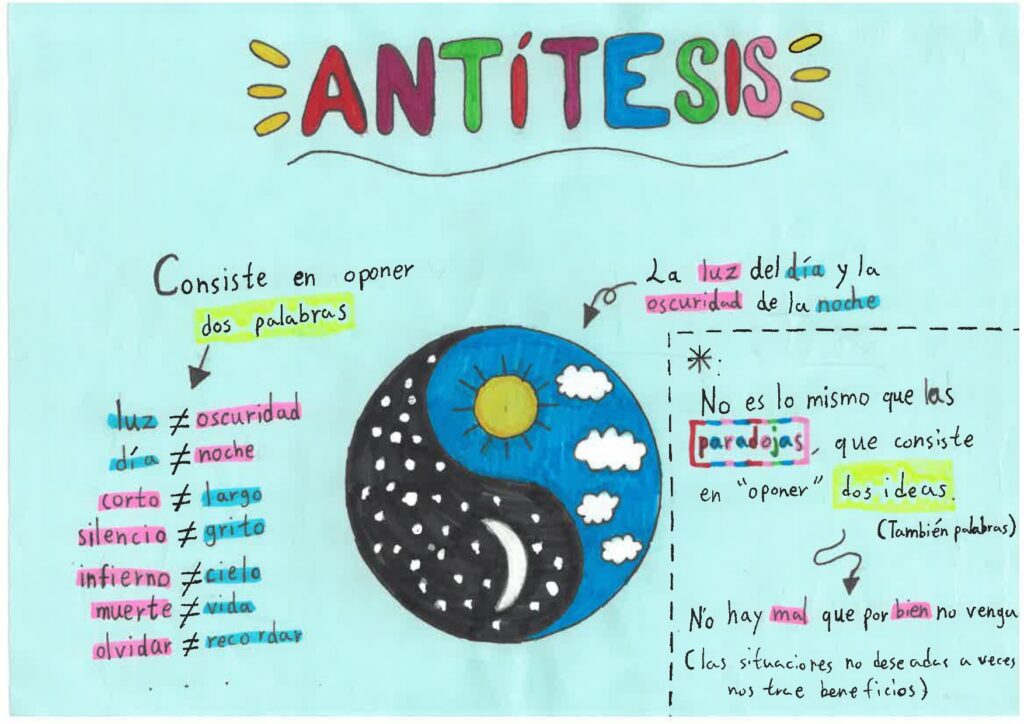 ANTÍTESIS
Consiste en oponer
dos palabras
luz ≠ oscuridad
día ≠ noche
corto ≠ largo
silencio ≠ grito
infierno ≠ cielo
muerte ≠ vida
olvidar ≠ recordar
. . .
La luz del día y la
oscuridad de la noche
*:
No es lo mismo que las
paradojas, que consiste
en "oponer" dos ideas.
(También palabras)
No hay mal que por bien no venga
(las situaciones no deseadas a veces
nos trae beneficios)